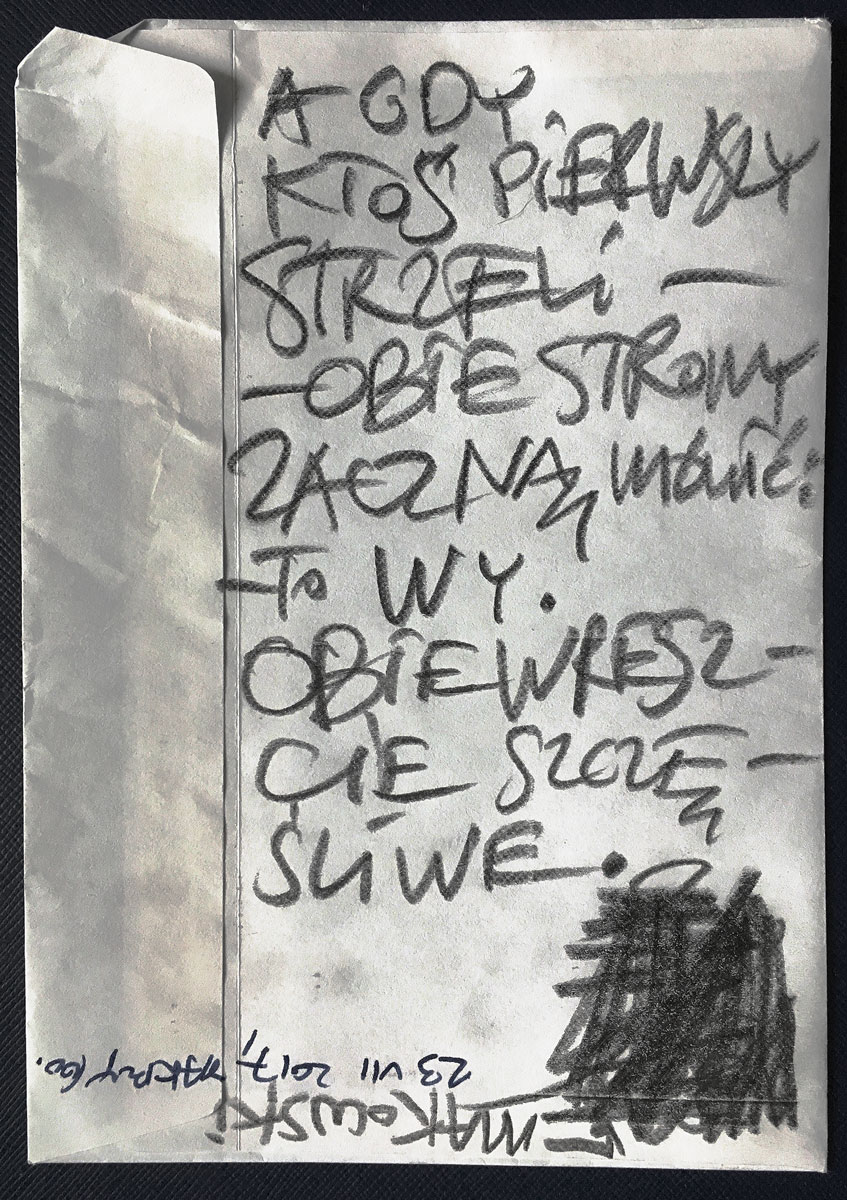 A GDY
KTOŚ PIERWSZY
STRZELI —
— OBIE STRONY
ZACZNĄ MÓWIĆ:
- TO WY.
OBIE WRESZ-
CIE SZCZĘ-
ŚLIWE.
23 VII 2017,
MAKOWSKI